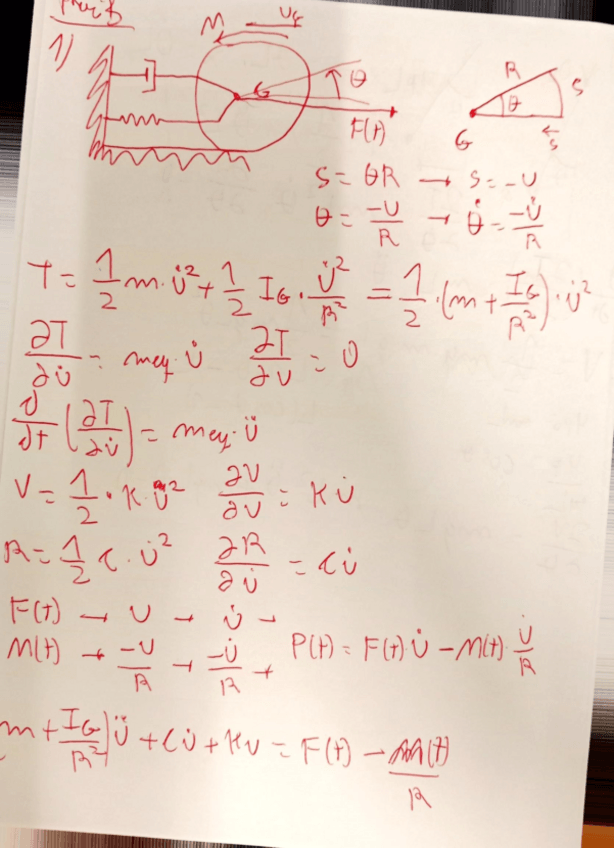 1)
M U̇
G θ
F(t)
R θ S
G S
S = θR → S = -U
θ = -U/R → θ̇ = -U̇/R
T = 1/2 m · U̇² + 1/2 I_G · U̇²/R² = 1/2 · (m + I_G/R²) · U̇²
∂T/∂U̇ = meq · U̇ ∂T/∂U = 0
d/dt (∂T/∂U̇) = meq · Ü
V = 1/2 · K · U̇² ∂V/∂U = K U̇
R = 1/2 C · U̇² ∂R/∂U̇ = C U̇
F(t) → U → U̇ →
M(t) → -U/R → -U̇/R → P(t) = F(t) · U̇ - M(t) · U̇/R
m + I_G/R²) Ü + C U̇ + K U = F(t) - M(t)/R